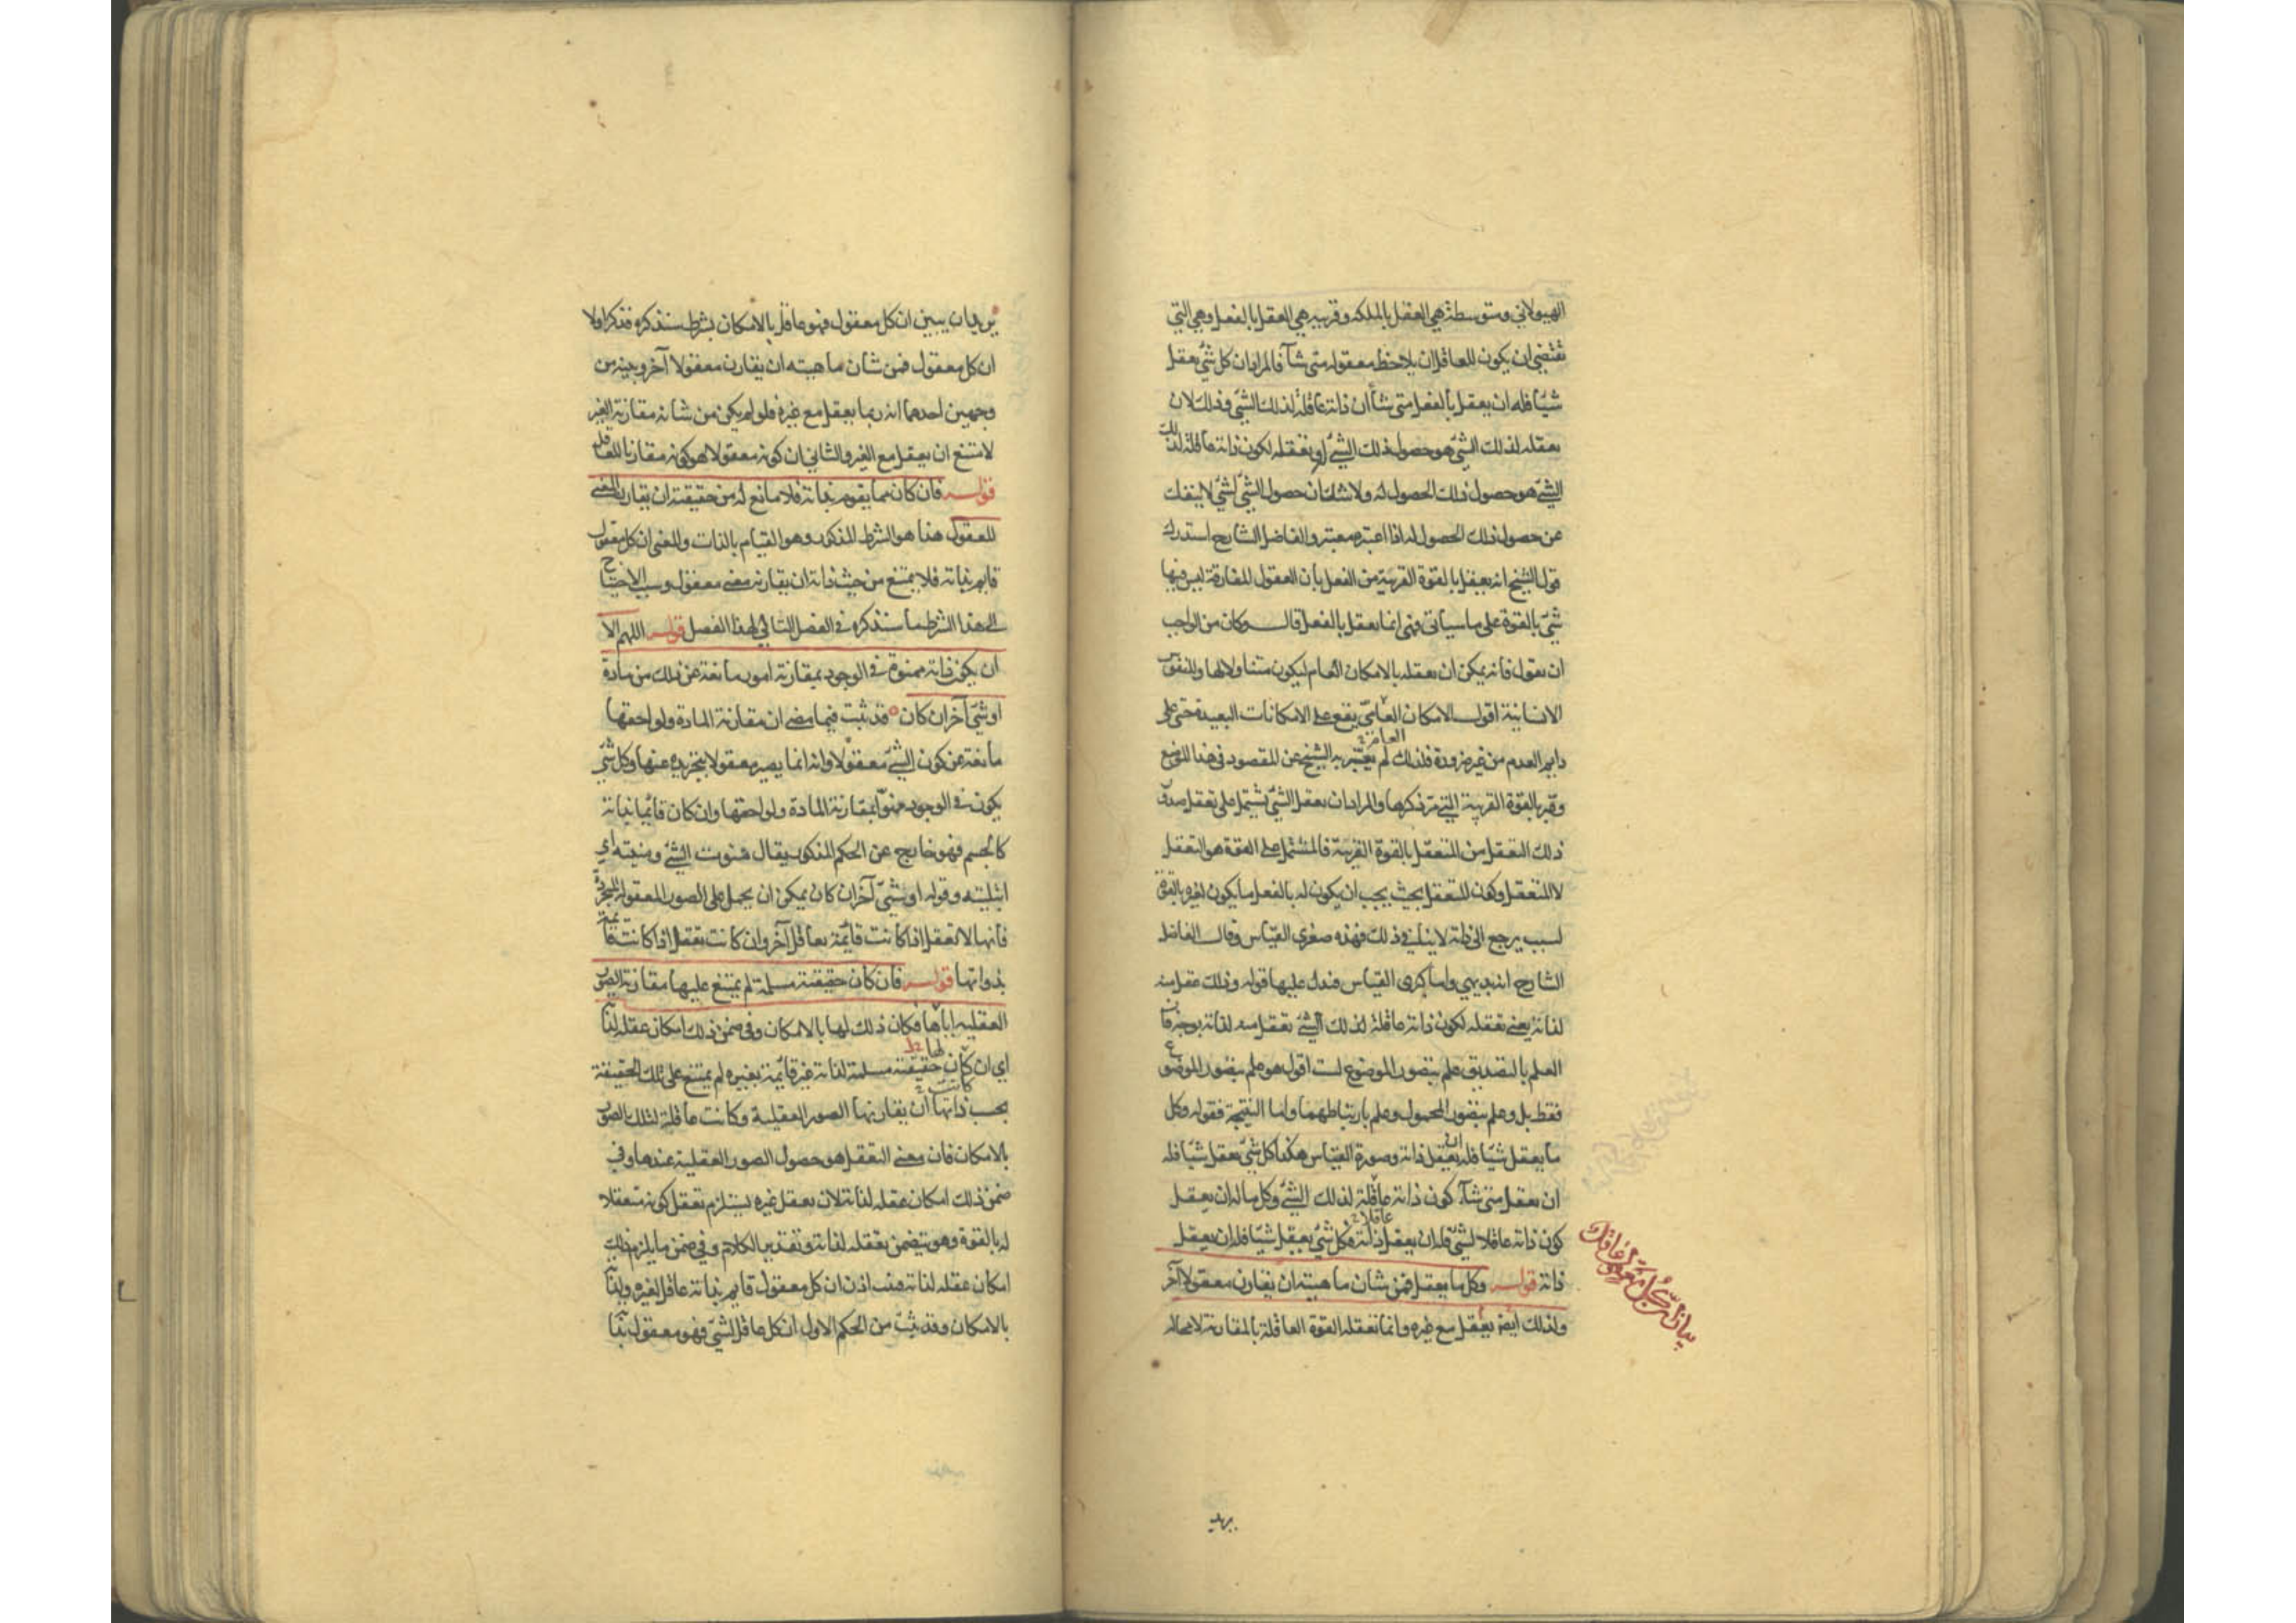 الهيولاني ومتوسطة هي العقل بالملكه وقريبه هي العقل بالفعل وهي التي
تقتضي ان يكون للعاقل ان يلاحظ معقوله متى شآ فالمراد ان كل شئ يعقل
شيئا فله ان يعقل بالفعل متى شاأن ذاته عاقلة لذلك الشئ وذلك لان
تعقله لذلك الشئ هو حصول ذلك الشئ له وتعقله لكون ذاته عاقلة لذلك
الشئ هو حصول ذلك الحصول له ولا شك ان حصول الشئ لشئ لا ينفك
عن حصول ذلك الحصول له اذا اعتبره معتبر والفاضل الشارح استدرك
قول الشيخ انه يعقل بالقوة القريبة من الفعل بأن العقول المفارقة ليس فيها
شئ بالقوة على ما سيأتي فهي انما يعقل بالفعل قال وكان من الواجب
ان يقول فانه يمكن ان يعقله بالامكان العام ليكون متناولا لها وللنفوس
الانسانية اقول الامكان العام يقع على الامكانات البعيدة حتى على
دايم العدم من غير ضرورة فلذلك لم يعبر به الشيخ عن المقصود في هذا الموضع
وعبر بالقوة القريبة التي مر ذكرها والمراد ان تعقل الشئ يشتمل على تعقل صدور
ذلك التعقل من المتعقل بالقوة القريبة فالمشتمل على القوة هو التعقل
لا المتعقل وكون المتعقل بحيث يجب ان يكون له بالفعل ما يكون لغيره بالقوة
لسبب يرجع الى ذاته لا ينافي ذلك فهذه صغرى القياس وقال الفاضل
الشارح انه بديهي واما كبرى القياس فدل عليها قوله وذلك عقل منه
لذاته يعني تعقله لكون ذاته عاقلة لذلك الشئ تعقل منه لذاته بوجه فان
العلم بالتصديق علم بتصور الموضوع لست اقول هو علم بتصور الموضوع
فقط بل وعلم بتصور المحمول وعلم بارتباطهما واما النتيجة فقوله وكل
ما يعقل شيئا فله ان يعقل ذاته وصورة القياس هكذا كل شئ يعقل شيئا فله
ان يعقل متى شآء كون ذاته عاقلة لذلك الشئ وكل ما له ان يعقل
كون ذاته عاقلا لشئ فله ان يعقل ذاته فكل شئ يعقل شيئا فله ان يعقل
ذاته قوله وكل ما يعقل فمن شان ماهيته ان يقارن معقولا آخر
ولذلك ايضا يعقل مع غيره وانما تعقله القوة العاقلة بالمقارنة لا محالة
بيان ان كل معقول عاقل
يريد
يريد ان يبين ان كل معقول فهو عاقل بالامكان بشرط سنذكره فذكر اولا
ان كل معقول فمن شان ماهيته ان يقارن معقولا آخر وبينه من
وجهين احدهما انه ربما يعقل مع غيره فلو لم يكن من شانه مقارنة الغير
لامتنع ان يعقل مع الغير والثاني ان كونه معقولا هو كونه مقارنا للعاقل
قوله فان كان مما يقوم بذاته فلا مانع له من حقيقته ان يقارن المعنى
المعقول هذا هو الشرط المذكور وهو القيام بالذات والمعنى ان كل معقول
قايم بذاته فلا يمتنع من حيث ذاته ان يقارنه معنى معقول وسبب الاحتياج
الى هذا الشرط ما سنذكره في الفصل التالي لهذا الفصل قوله اللهم الا
ان يكون ذاته ممنوة في الوجود بمقارنة امور مانعة عن ذلك من مادة
او شئ آخر ان كان قد ثبت فيما مضى ان مقارنة المادة ولواحقها
مانعة عن كون الشئ معقولا وانه انما يصير معقولا بتجريده عنها وكل شئ
يكون في الوجود ممنوا بمقارنة المادة ولواحقها وان كان قائما بذاته
كالجسم فهو خارج عن الحكم المذكور يقال منوت الشئ ومنيته اي
ابتليته وقوله او شئ آخر ان كان يمكن ان يحمل على الصور المعقولة المجردة
فانها لا تعقل اذا كانت قائمة بعاقل آخر وان كانت تعقل اذا كانت قائمة
بذواتها قوله فان كان حقيقته مسلمة لم يمتنع عليها مقارنة الصور
العقليه اياها فكان ذلك لها بالامكان وفي ضمن ذلك امكان عقله لذاته
اي ان كان حقيقته مسلمة لذاته غير قائمة بغيره لم يمتنع على تلك الحقيقة
بحسب ذاتها أن يقارنها الصور العقلية وكانت عاقلة لتلك الصور
بالامكان فان معنى التعقل هو حصول الصور العقلية عندها وفي
ضمن ذلك امكان عقله لذاته لان تعقل غيره يستلزم تعقل كونه متعقلا
له بالقوة وهو يتضمن تعقله لذاته وتقدير الكلام وفي ضمن ما يلزم ذلك
امكان عقله لذاته فثبت اذن ان كل معقول قايم بذاته عاقل لغيره ولذاته
بالامكان وقد ثبت من الحكم الاول ان كل عاقل لشئ فهو معقول بذاته